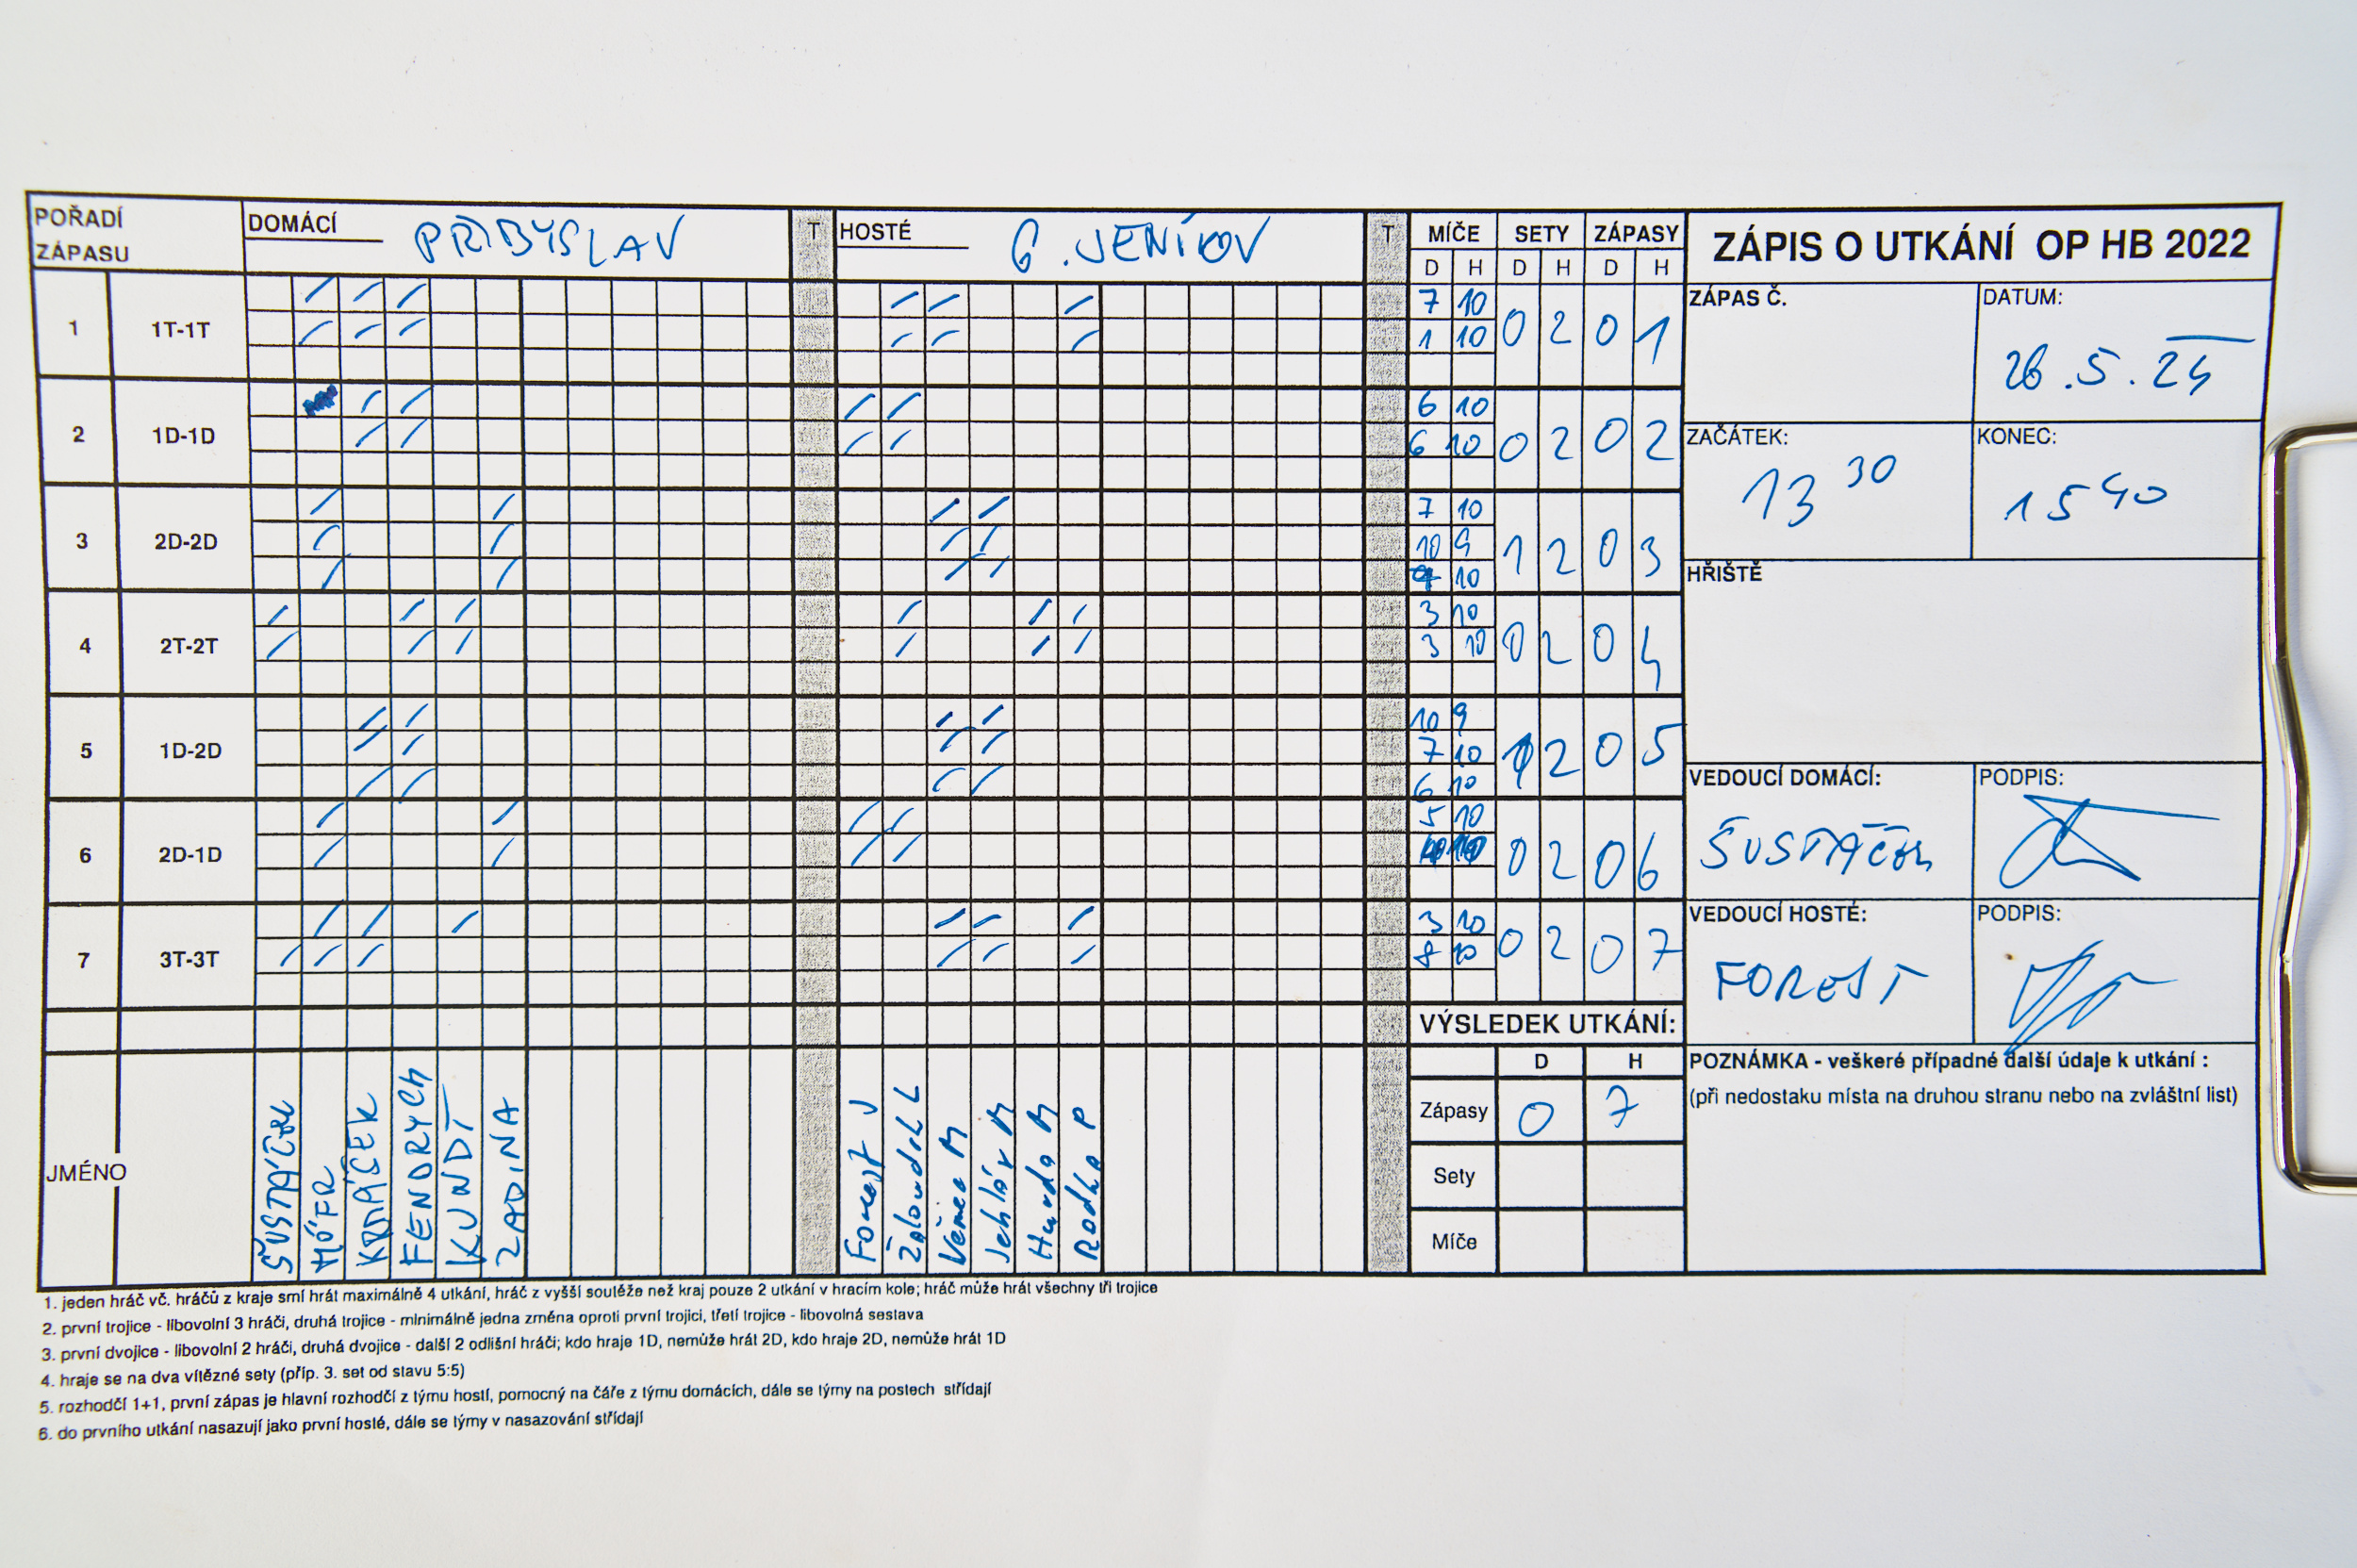 POŘADÍ ZÁPASU DOMÁCÍ PŘIBYSLAV T HOSTÉ G. JENÍKOV T MÍČE SETY ZÁPASY
D H D H D H
ZÁPIS O UTKÁNÍ OP HB 2022
1 1T-1T 7 10 0 2 0 1
1 10
2 1D-1D 6 10 0 2 0 2
6 10
3 2D-2D 7 10 1 2 0 3
10 9
10
4 2T-2T 3 10 0 2 0 4
3 10
5 1D-2D 10 9 1 2 0 5
7 10
6 10
6 2D-1D 5 10 0 2 0 6
7 3T-3T 3 10 0 2 0 7
8 10
ZÁPAS Č.
DATUM:
26.5.24
ZAČÁTEK:
13 30
KONEC:
15 40
HŘIŠTĚ
VEDOUCÍ DOMÁCÍ:
PODPIS:
VEDOUCÍ HOSTÉ:
FOREST
PODPIS:
VÝSLEDEK UTKÁNÍ:
D H
Zápasy 0 7
Sety
Míče
POZNÁMKA - veškeré případné další údaje k utkání :
(při nedostaku místa na druhou stranu nebo na zvláštní list)
JMÉNO
FENDRYCH
KUNDT
ZADINA
Forest J
Žaloudek L
Jehlár M
Hurda M
1. jeden hráč vč. hráčů z kraje smí hrát maximálně 4 utkání, hráč z vyšší soutěže než kraj pouze 2 utkání v hracím kole; hráč může hrát všechny tři trojice
2. první trojice - libovolní 3 hráči, druhá trojice - minimálně jedna změna oproti první trojici, třetí trojice - libovolná sestava
3. první dvojice - libovolní 2 hráči, druhá dvojice - další 2 odlišní hráči; kdo hraje 1D, nemůže hrát 2D, kdo hraje 2D, nemůže hrát 1D
4. hraje se na dva vítězné sety (příp. 3. set od stavu 5:5)
5. rozhodčí 1+1, první zápas je hlavní rozhodčí z týmu hostí, pomocný na čáře z týmu domácích, dále se týmy na postech střídají
6. do prvního utkání nasazují jako první hosté, dále se týmy v nasazování střídají